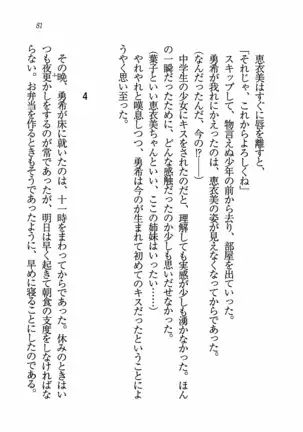 81
恵衣美はすぐに唇を離すと、
「それじゃ、これからよろしくね」
スキップして、物言えぬ少年の前から去り、部屋を出ていった。
勇希が我れにかえったのは、恵衣美の姿が見えなくなってからであった。
(なんだったんだ、今の!?)
中学生の少女にキスをされたのだと、理解しても実感が少しも湧かなかった。ほん
の一瞬だったためか、どんな感触だったのか少しも思いだせなかった。
(葉子といい恵衣美ちゃんといい、ここの姉妹はいったい……)
やれやれと嘆息しつつ、勇希は今のが生まれて初めてのキスだったということによ
うやく思い至った。
4
その晩、勇希が床に就いたのは、十一時をまわってからであった。休みのときはい
つも夜更かしをするのが常であったが、明日は早く起きて朝食の支度をしなければな
らない。お弁当を作るときもそうであったように、早めに寝ることにしたのだ。